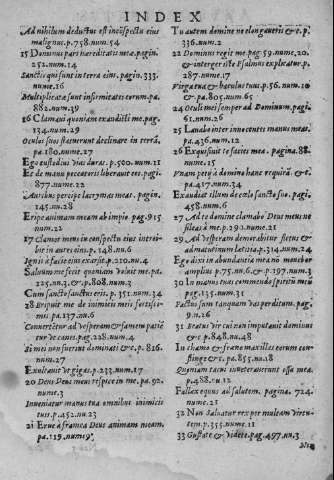 INDEX
Ad nihilum deductus est in cõspectu eius
malignus p.758.num.54
15 Dominus pars hæreditatis meæ.pagin.
252.num.14
Sanctis qui sunt in terra eius. pagin. 333.
nume.16
Multiplicatæ sunt infirmitates eorum.pa.
882.num.39
16 Clamaui quoniam exaudisti me.pag.
134.num.29
Oculos suos statuerunt declinare in terrã.
pa.180.nume.17
Ego custodiui vias duras. p.500.num.11
Et de manu peccatoris liberaret eos.pagi.
877.nume.22
Auribus percipe lacrymas meas. pagin.
145.nu.28
Eripe animam meam ab impio pag.915
num.22
17 Clamor meus in conspectu eius introi-
bit in aures eius.p.148.nu.6
Ignis à facie eius exarsit.p.210.nu.4
Saluum me fecit quoniam voluit me.pa.
225.nn.3.& p.808.num.3
Cum sancto sanctus eris. p.351.num.34
18 Eripuit me de inimicis meis fortissi-
mis.pa.137.nn.6
Conuertẽtur ad vesperam & famem patiẽ
tur vt canes.pag.228.num.4
Si mei non fuerint dominati &c. p. 826.
num.27
Exultauit vt gigas. p.233.num.17
20 Deus Deus meus respice in me.pa.92.
nume.3
Inueniatur manus tua omnibus inimicis
tuis.p.452.nn.23
21 Erue à framea Deus animam meam.
pa.119.nume.9
Tu autem domine ne elongaueris &c.p.
336.num.2
22 Dominus regit me.pag.59.nume.20.
& integer iste Psalmus explicatur.p.
287.nume.17
Virga tua & baculus tuus.p.56. num.10
& pa.805.nu.65
24 Oculi mei semper ad Dominum.pagi.
61.num.26
25 Lanabo inter innocentes manus meas.
pa.436.nu.12
26 Exquisiuit te facies mea. pagina.88.
nume.15
Vnam petij à domino hanc requirã &c.
pa.417.nu.34
Exaudiat illum de cælo sancto suo. pagi.
458.num.6
27 Ad te domine clamabo Deus meus ne
sileas à me p.290.nume.21
29 Ad vesperum demorabitur fletus &
ad matutinum lætitia.p.314.num.24
Ego dixi in abundantia mea nõ mouebor
amplius p.75.nn.6.& p.197.num.3
30 In manus tuas commendo spiritũ meũ
pag.135.num.31
Factus sum tanquam vas perditum. pag.
9.n.26
31 Beatus vir cui non imputauit dominus
&c p.848.nu.48
In chamo & fræno maxillas eorum con-
stringe &c. pa.855.nn.18
Quoniam tacui inueterauerunt ossa mea.
p.488.nu.12
Fallax equus ad salutem. pagina. 724.
nume.21
32 Non saluatur rex per multam virtu-
tem.p.355.nume.11
33 Gustate & videte pag.497.nn.3